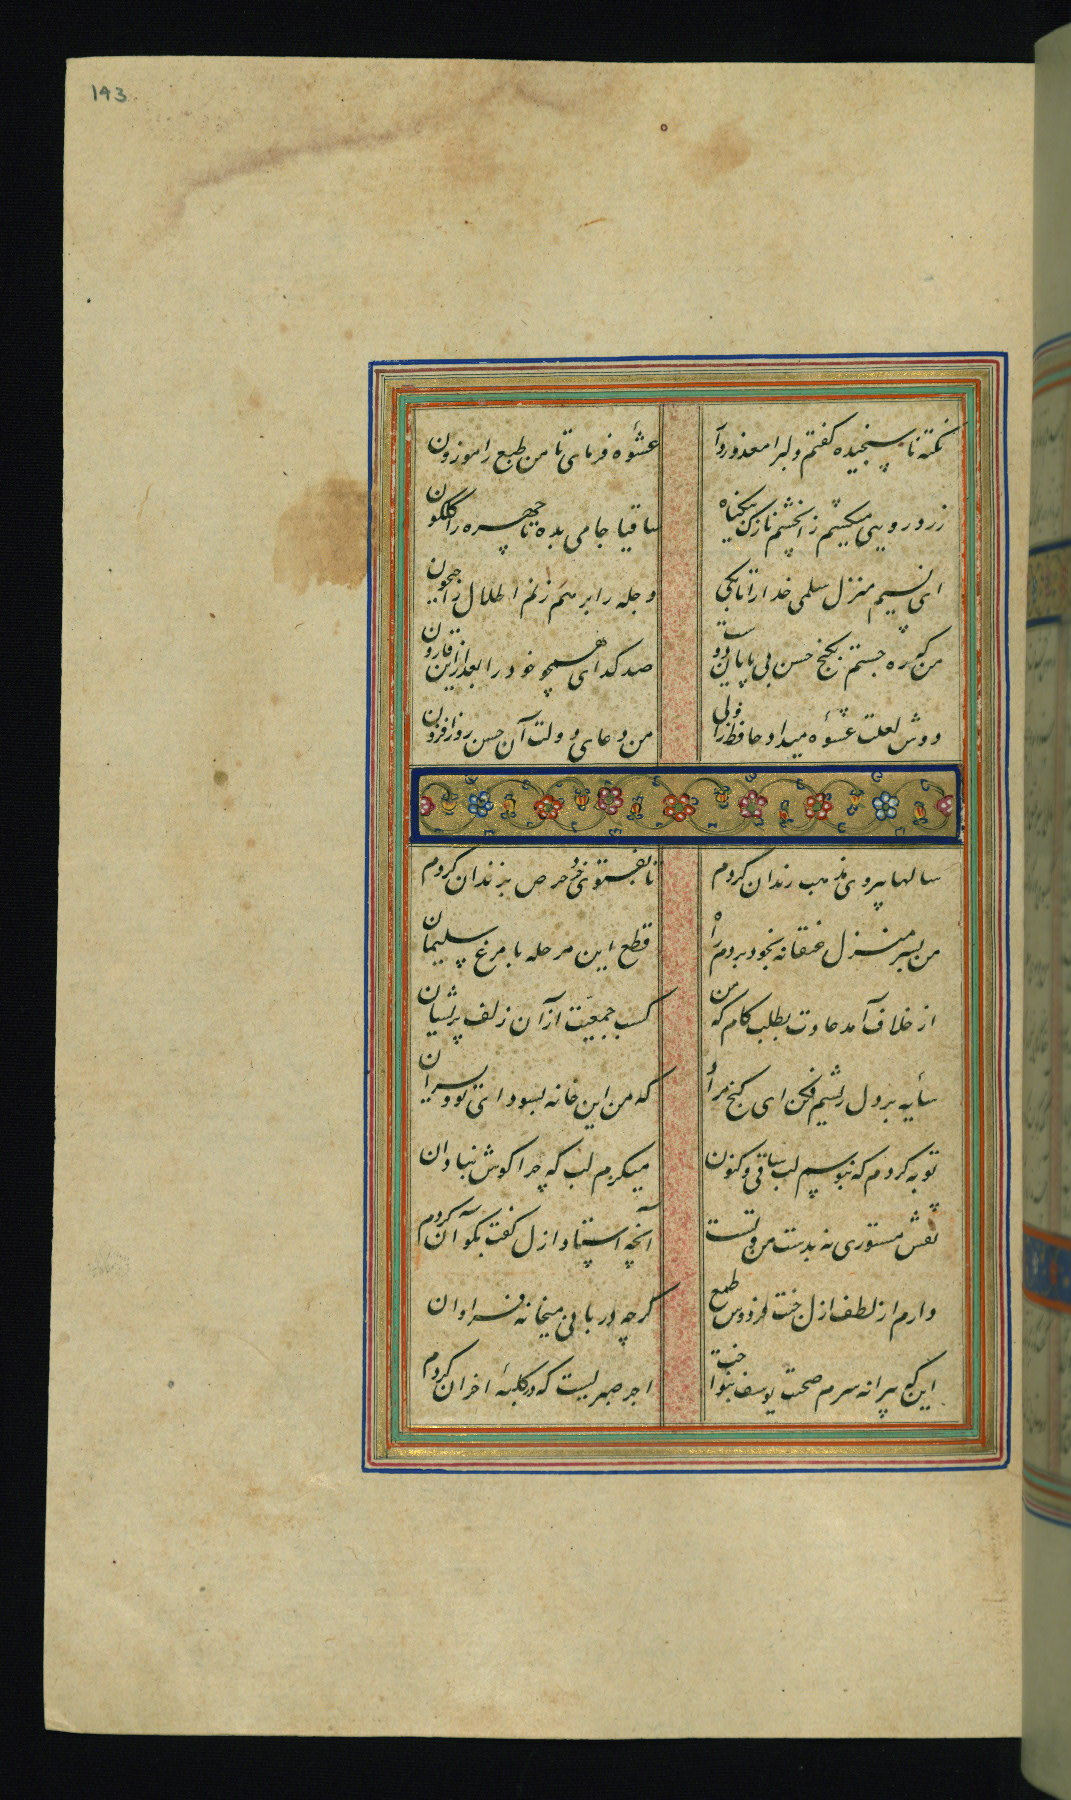 193
نکته ناسنجیده گفتم دلبرا معذور دار
عشوه فرمای تا من طبع را موزون
زرد رویی میکشم زانچشم نازک بیگناه
ساقیا جامی بده تا چهره را گلگون
ای نسیم منزل سلمی خدا را تا بکی
دجله را برهم زنم اطلال را جیحون
من که ره جستم بگنج حسن بی پایان دوست
صد گدای همچو خود را بعد ازین قارون
دوش لعلت عشوه میداد حافظ را ولی
من دعای دولت آن حسن روزافزون
سالها پیروی مذهب رندان کردم
تا بفتوی خرد حرص بزندان کردم
من بسر منزل عنقا نه بخود بردم راه
قطع این مرحله با مرغ سلیمان
از خلاف آمد عادت بطلب کام که من
کسب جمعیت از آن زلف پریشان
سایه بر دل ریشم فکن ای گنج مراد
که من این خانه بسودای تو ویران
توبه کردم که نبوسم لب ساقی و کنون
میگزم لب که چرا گوش بنادان
نقش مستوری نه بدست من و تست
آنچه استاد ازل گفت بگو آن کردم
دارم از لطف ازل جنت فردوس طمع
گرچه دربانی میخانه فراوان
این که پیرانه سرم صحبت یوسف بنواخت
اجر صبریست که در کلبه احزان کردم